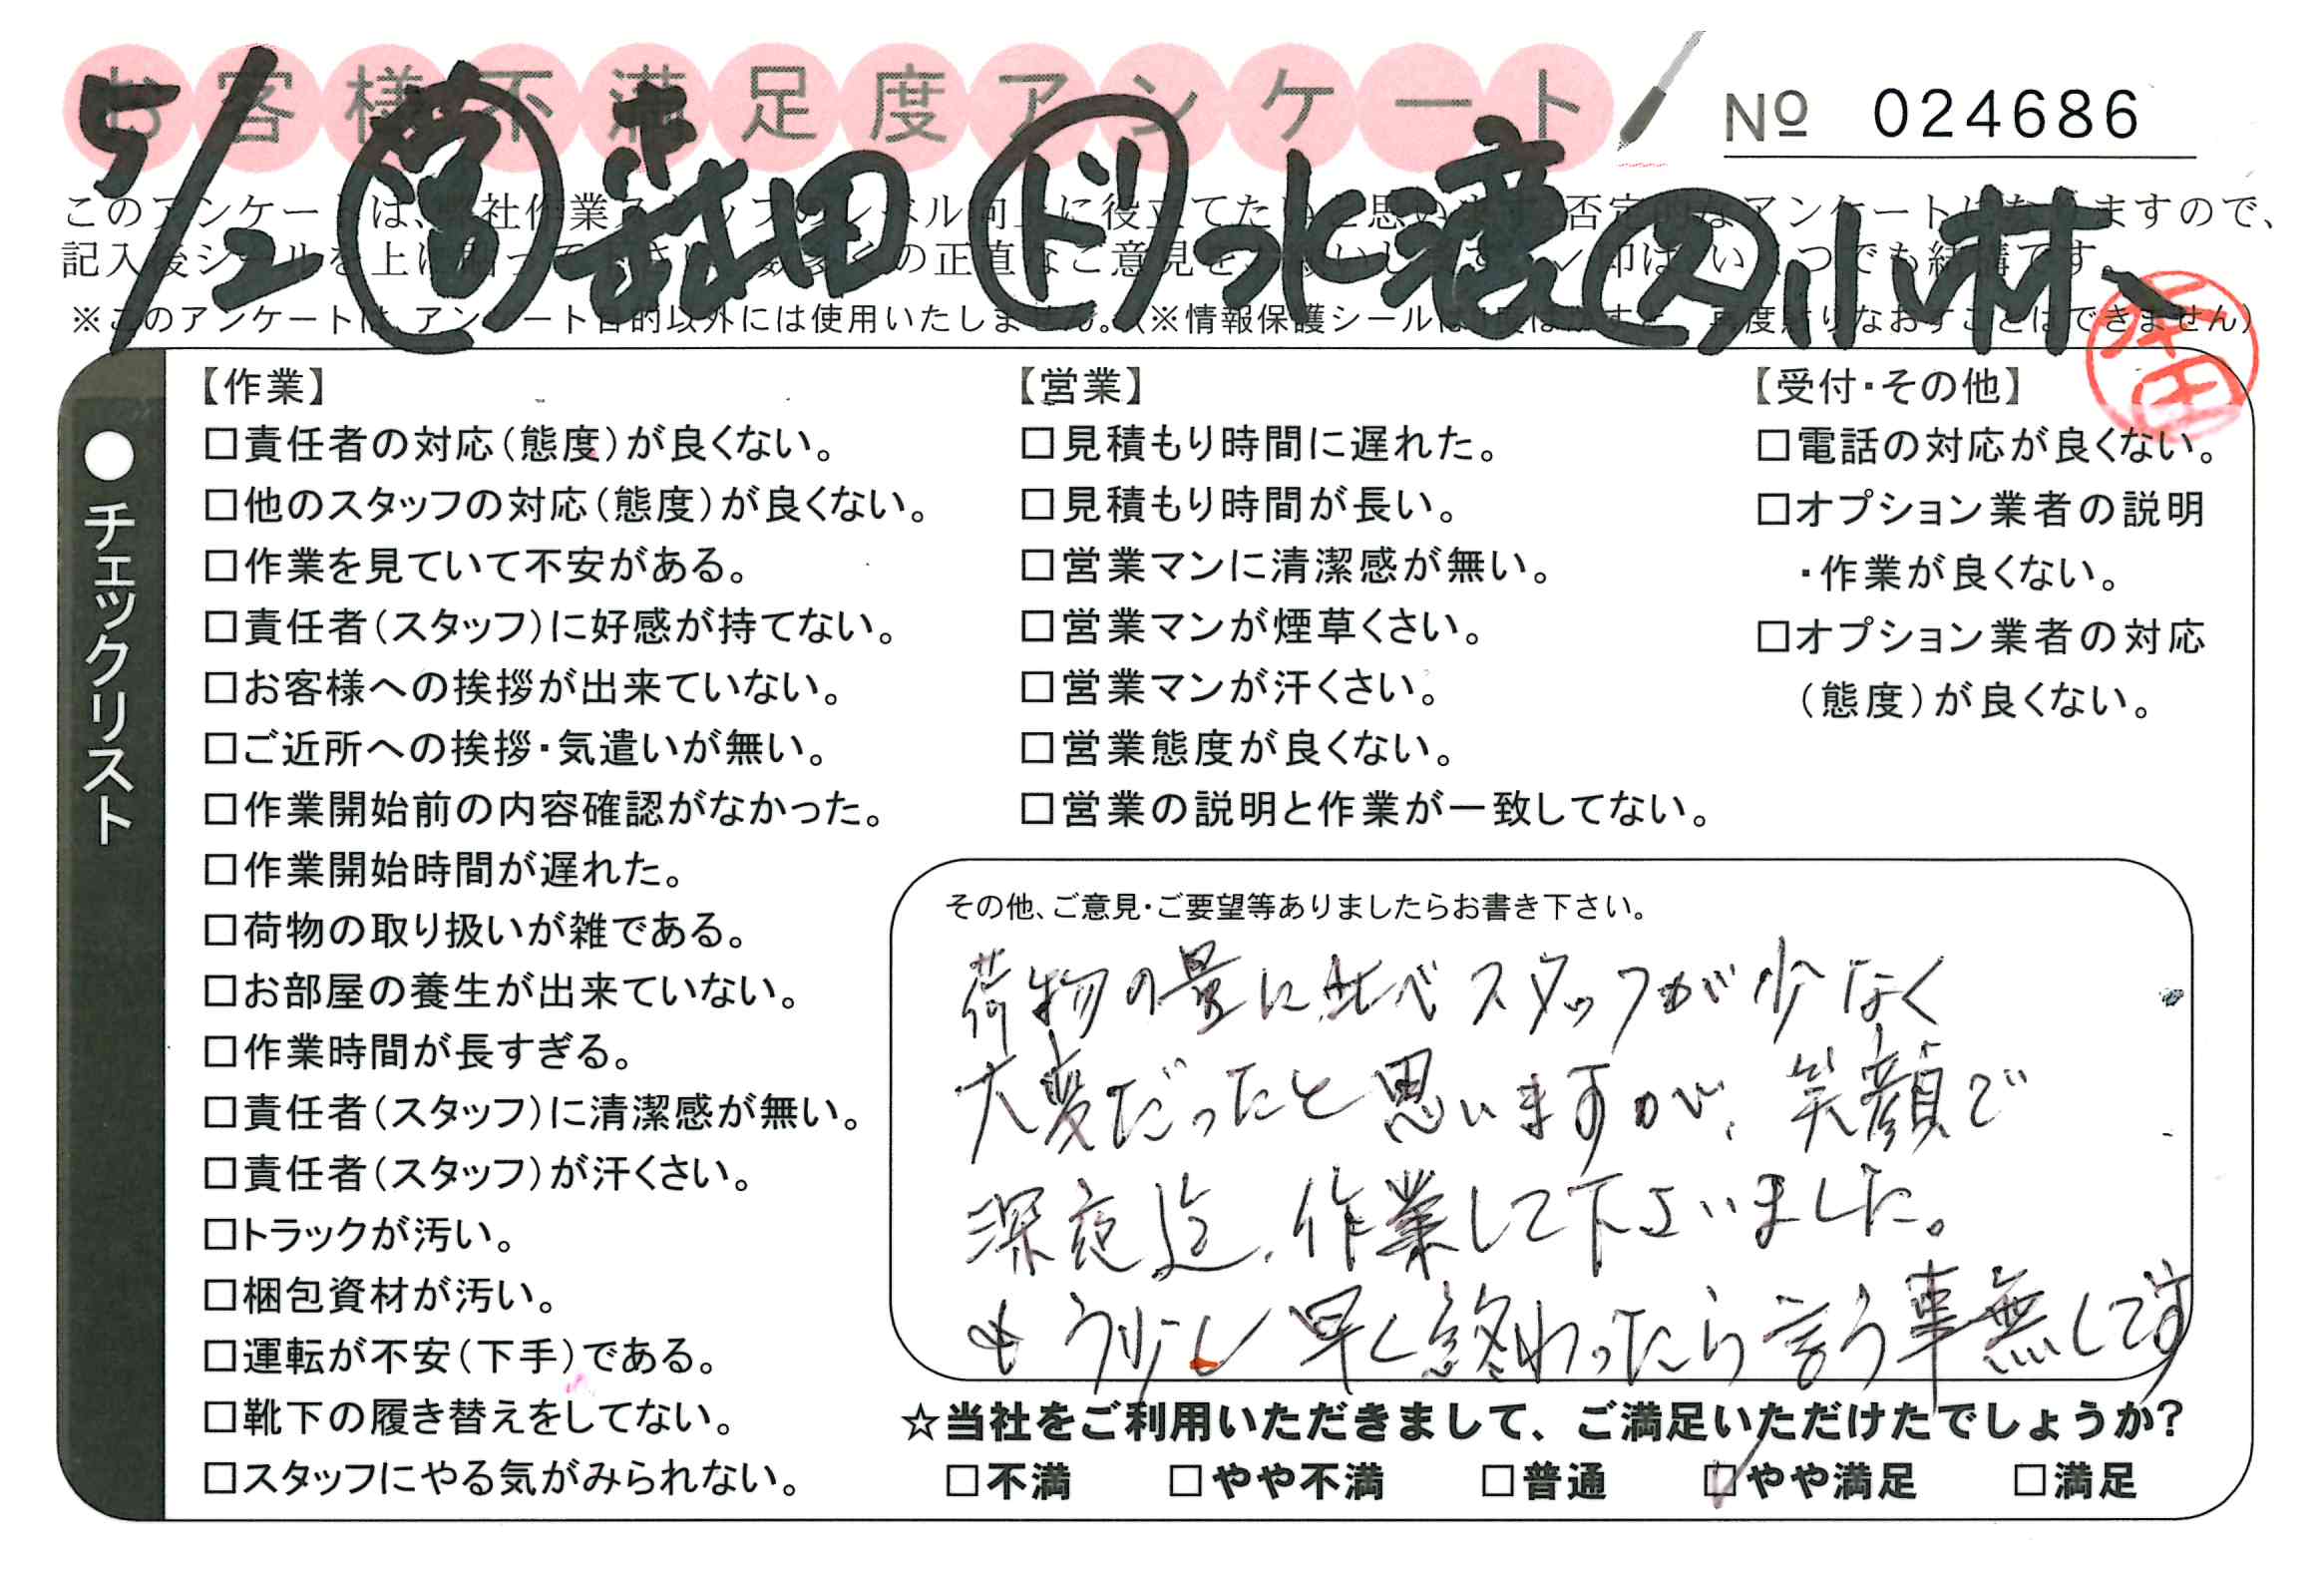 お客様不満足度アンケート
№ 024686
5/2 営 森田 ド 水渡 ス 小林
このアンケートは、
記入後シールを上に
※このアンケートは、アンケート目的以外には使用いたしません。(※情報保護シールは1度はがすと、再度貼りなおすことはできません)
●チェックリスト
【作業】
□責任者の対応(態度)が良くない。
□他のスタッフの対応(態度)が良くない。
□作業を見ていて不安がある。
□責任者(スタッフ)に好感が持てない。
□お客様への挨拶が出来ていない。
□ご近所への挨拶・気遣いが無い。
□作業開始前の内容確認がなかった。
□作業開始時間が遅れた。
□荷物の取り扱いが雑である。
□お部屋の養生が出来ていない。
□作業時間が長すぎる。
□責任者(スタッフ)に清潔感が無い。
□責任者(スタッフ)が汗くさい。
□トラックが汚い。
□梱包資材が汚い。
□運転が不安(下手)である。
□靴下の履き替えをしてない。
□スタッフにやる気がみられない。
【営業】
□見積もり時間に遅れた。
□見積もり時間が長い。
□営業マンに清潔感が無い。
□営業マンが煙草くさい。
□営業マンが汗くさい。
□営業態度が良くない。
□営業の説明と作業が一致してない。
【受付・その他】
□電話の対応が良くない。
□オプション業者の説明
・作業が良くない。
□オプション業者の対応
(態度)が良くない。
その他、ご意見・ご要望等ありましたらお書き下さい。
荷物の量に比べスタッフが少なく
大変だったと思いますが、笑顔で
深夜迄、作業して下さいました。
もう少し早く終わったら言う事無しです
☆当社をご利用いただきまして、ご満足いただけたでしょうか?
□不満 □やや不満 □普通 ☑やや満足 □満足